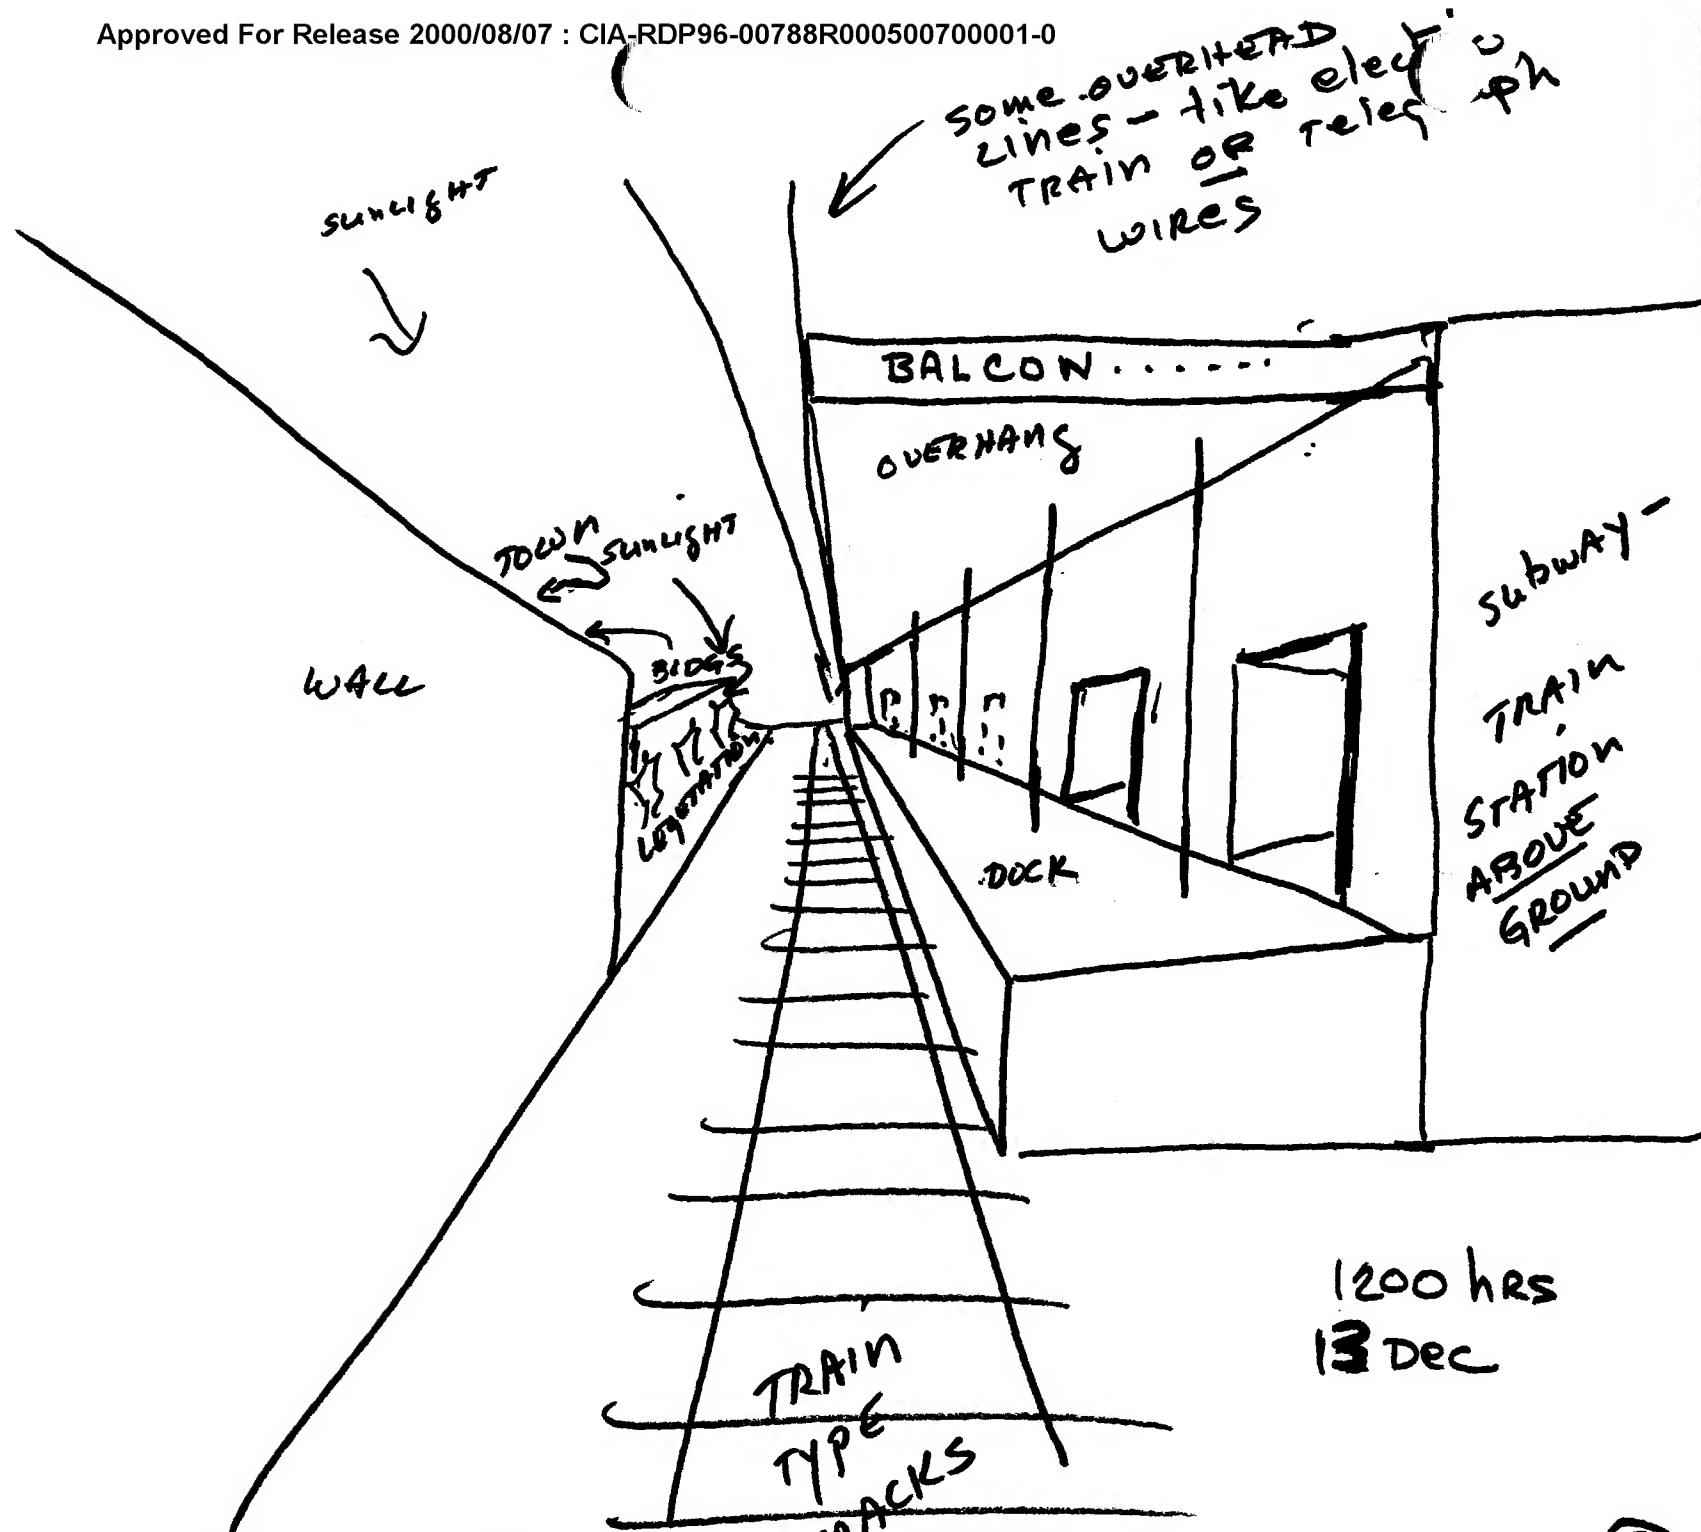 Approved For Release 2000/08/07 : CIA-RDP96-00788R000500700001-0
SOME OVERHEAD
LINES - like elect
TRAIN OR Teleg ph
WIRES
SUNLIGHT
BALCON.......
OVERHANG
TOWN
SUNLIGHT
BLDGS
WALL
VEGETATION
DOCK
SUBWAY -
TRAIN
STATION
ABOVE
GROUND
1200 hRS
13 Dec
TRAIN
TYPE
RACKS